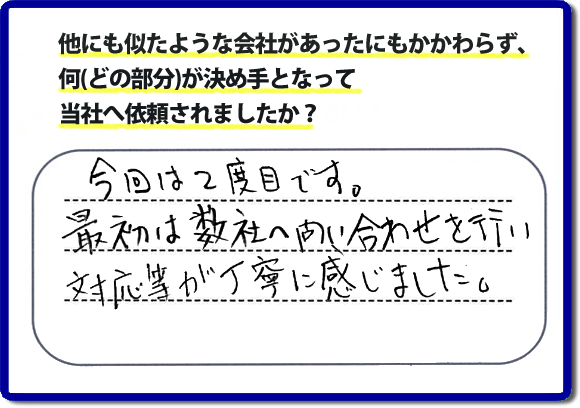 他にも似たような会社があったにもかかわらず、
何(どの部分)が決め手となって
当社へ依頼されましたか？
今回は2度目です。
最初は数社へ問い合わせを行い
対応等が丁寧に感じました。